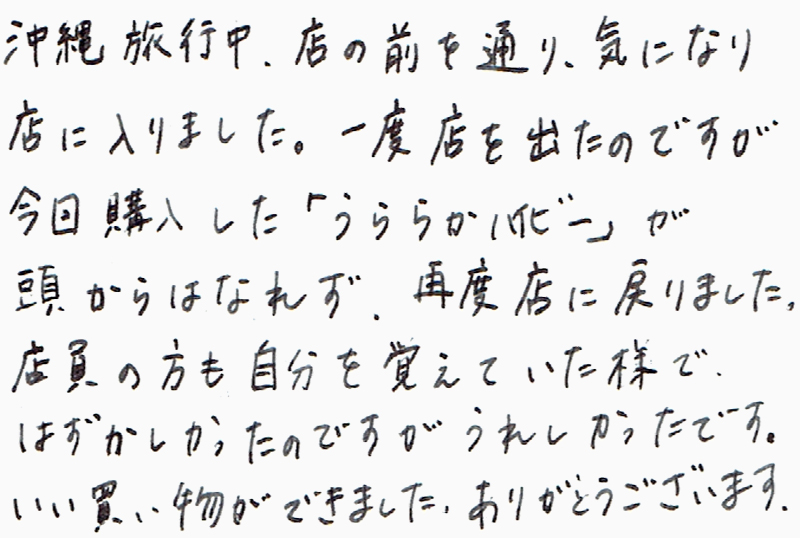 沖縄旅行中、店の前を通り、気になり
店に入りました。一度店を出たのですが
今回購入した「うららかハイビー」が
頭からはなれず、再度店に戻りました。
店員の方も自分を覚えていた様で、
はずかしかったのですがうれしかったです。
いい買い物ができました。ありがとうございます。